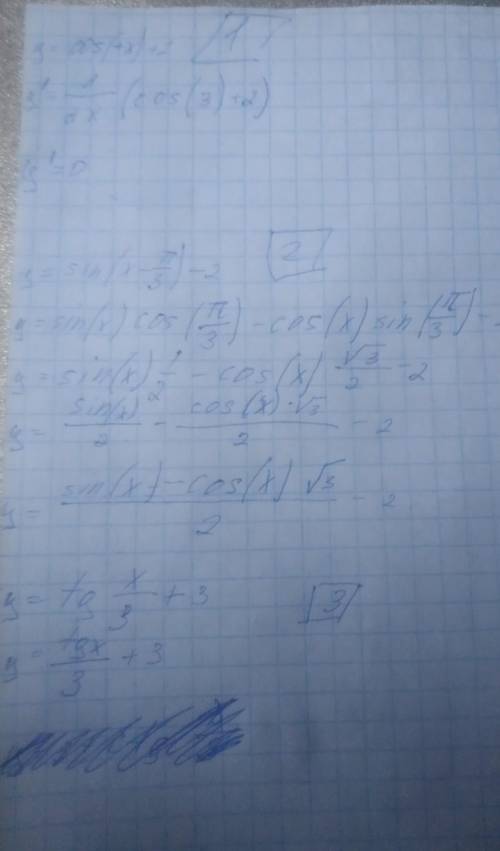 1
y' = (cos(3)+2)
y' = 0
2
y = sin(x - π/3) - 2
y = sin(x) cos(π/3) - cos(x) sin(π/3) -
y = sin(x) 1/2 - cos(x) √3/2 - 2
y = sin(x)/2 - cos(x)·√3/2 - 2
y = sin(x) - cos(x) √3/2 - 2
y = tg x/3 + 3
3
y = tgx/3 + 3